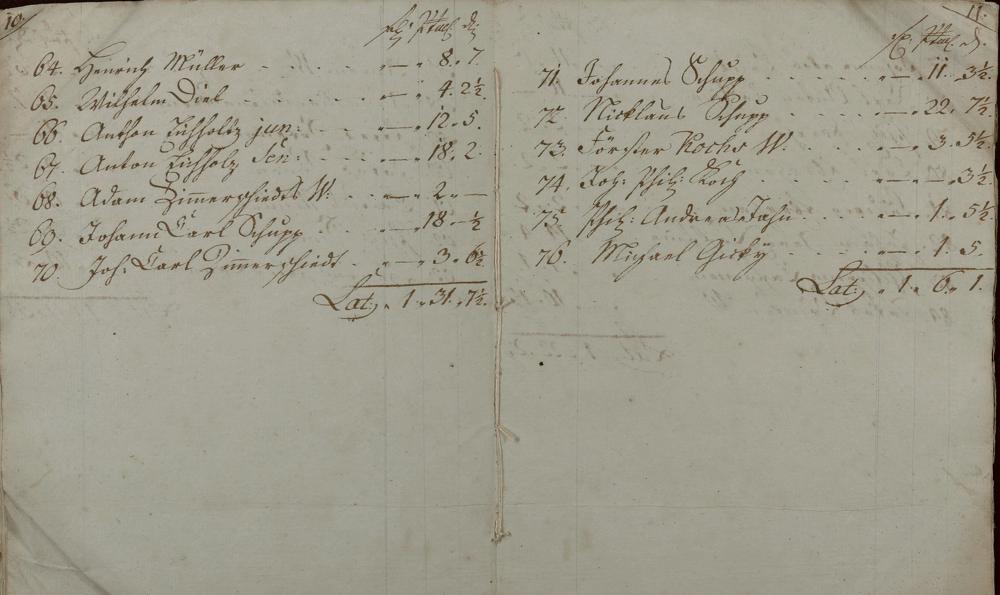 10.
64. Henrich Müller . . . . — " 8. 7.
65. Wilhelm Diel . . . . — " 4. 2½.
66. Anthon Eichholtz jun: . . — " 12. 5.
67. Anton Eichholz Sen: . . . — " 18. 2.
68. Adam Zimmerschiedts W: . . — " 2. " —
69. Johann Carl Schupp . . . — " 18 — ½
70. Joh: Carl Zimmerschiedt . — " 3. 6½
Lat: " 1. " 31. " 7½.
11.
71. Johannes Schupp . . . . " — " 11. 3½.
72. Nicklaus Schupp . . . . " — " 22. 7½
73. Förster Kochs W. . . . " — " 3. 5½.
74. Joh: Phil: Koch . . . . " — " — " 3½.
75. Phil: Andreas Jahn . . . " — " 1. 5½
76. Michael Gicky . . . . " — " 1. 5.
Lat: " 1. " 6. " 1.